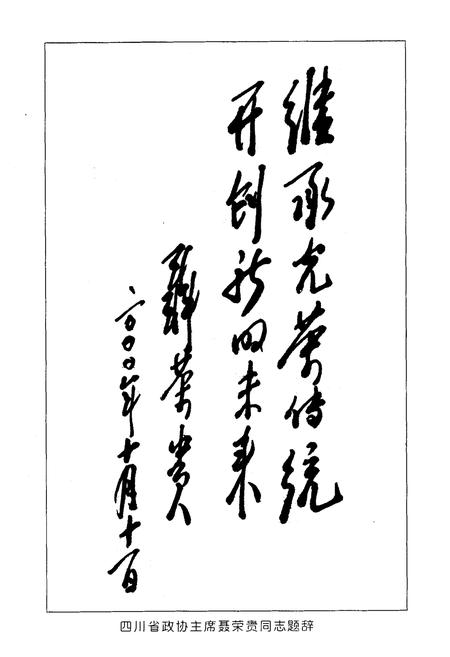 继承光荣传统
开创新的未来
聶荣贵
二〇〇〇年十月十一日
四川省政协主席聂荣贵同志题辞